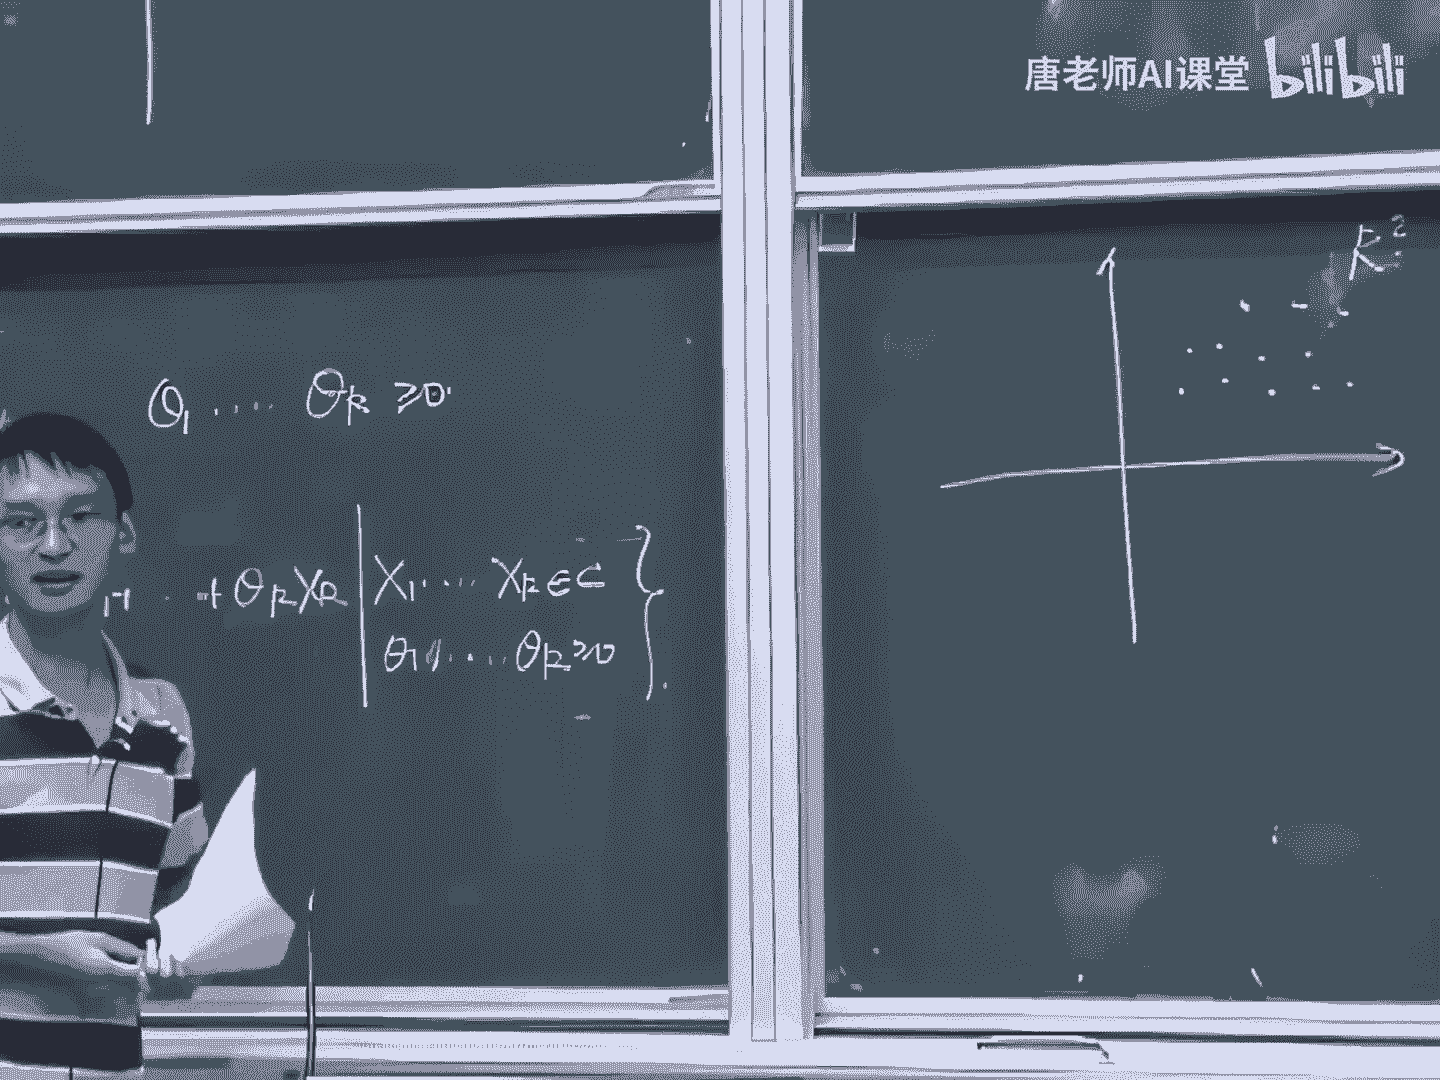 唐老师AI课堂 bilibili
θ₁ ···· θₖ ≥0.
· · +θₖXₖ | X₁····· Xₖ∈C }
θ₁ ····· θₖ≥0
R²